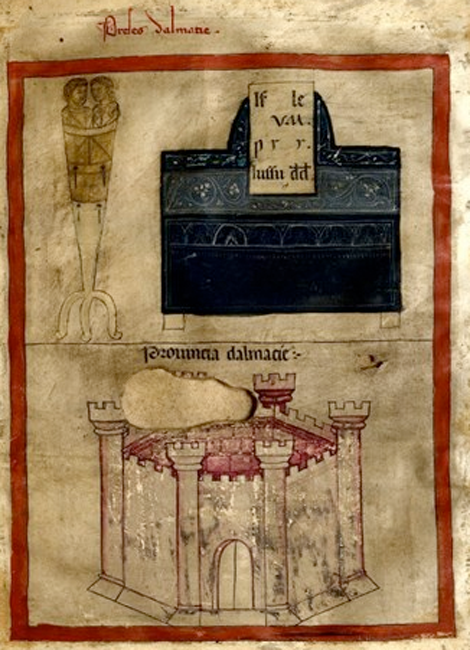 Preses dalmatie.
If le
VM.
p r r.
iussu dd
Prouincia dalmacie:-